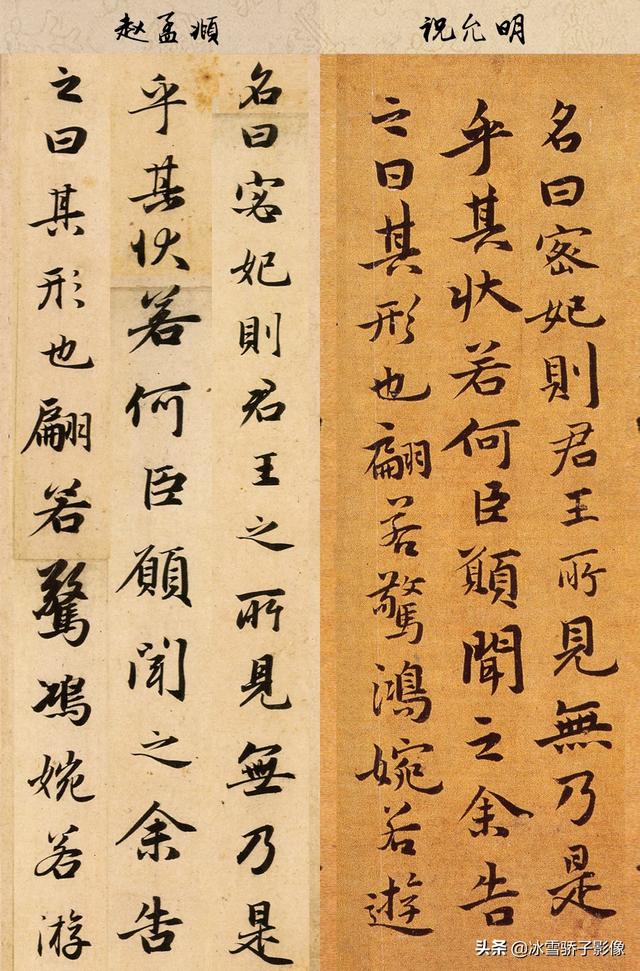 赵孟頫
名曰宓妃則君王之所見無乃是
乎其狀若何臣願聞之余告
之曰其形也翩若驚鴻婉若游
祝允明
名曰密妃則君王所見無乃是
乎其狀若何臣願聞之余告
之曰其形也翩若驚鴻婉若遊
头条 @冰雪骄子影像